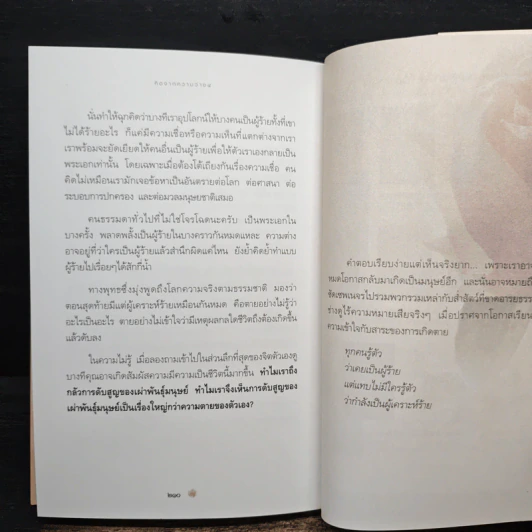 นั่นทำให้ฉุกคิดว่าบางทีเราอุปโลกน์ให้บางคนเป็นผู้ร้ายทั้งที่เขา
ไม่ได้ร้ายอะไร ก็แค่มีความเชื่อหรือความเห็นที่แตกต่างจากเรา
เราพร้อมจะยัดเยียดให้คนอื่นเป็นผู้ร้ายเพื่อให้ตัวเราเองกลายเป็น
พระเอกเท่านั้น โดยเฉพาะเมื่อต้องโต้เถียงกันเรื่องความเชื่อ คน
คิดไม่เหมือนเรามักเจอข้อหาเป็นอันตรายต่อโลก ต่อศาสนา ต่อ
ระบอบการปกครอง และต่อมวลมนุษยชาติเสมอ
คนธรรมดาทั่วไปที่ไม่ใช่โจรโฉดนะครับ เป็นพระเอกใน
บางครั้ง พลาดพลั้งเป็นผู้ร้ายในบางคราวกันหมดแหละ ความต่าง
อาจอยู่ที่ว่าใครเป็นผู้ร้ายแล้วสำนึกผิดแค่ไหน ยังย้ำคิดย้ำทำแบบ
ผู้ร้ายไปเรื่อยๆได้สักกี่น้ำ
ทางพุทธซึ่งมุ่งพูดถึงโลกความจริงตามธรรมชาติ มองว่า
ตอนสุดท้ายมีแต่ผู้เคราะห์ร้ายเหมือนกันหมด คือตายอย่างไม่รู้ว่า
อะไรเป็นอะไร ตายอย่างไม่เข้าใจว่ามีเหตุผลกลใดชีวิตถึงต้องเกิดขึ้น
แล้วดับลง
ในความไม่รู้ เมื่อลองถามเข้าไปในส่วนลึกที่สุดของจิตตัวเองดู
บางทีคุณอาจเกิดสัมผัสความมีความเป็นชีวิตนี้มากขึ้น ทำไมเราถึง
กลัวการดับสูญของเผ่าพันธุ์มนุษย์ ทำไมเราจึงเห็นการดับสูญของ
เผ่าพันธุ์มนุษย์เป็นเรื่องใหญ่กว่าความตายของตัวเอง?
๒๑๐
คำตอบเรียบง่ายแต่เห็นจริงยาก... เพราะเราอาจ
หมดโอกาสกลับมาเกิดเป็นมนุษย์อีก และนั่นอาจหมายถึง
ซัดเซพเนจรไปรวมพวกรวมเหล่ากับสำสัตว์ที่ขาดอารยธรรม
ร่างดูไร้ความหมายเสียจริงๆ เมื่อปราศจากโอกาสเรียน
ความเข้าใจกับสาระของการเกิดตาย
ทุกคนรู้ตัว
ว่าเคยเป็นผู้ร้าย
แต่แทบไม่มีใครรู้ตัว
ว่ากำลังเป็นผู้เคราะห์ร้าย